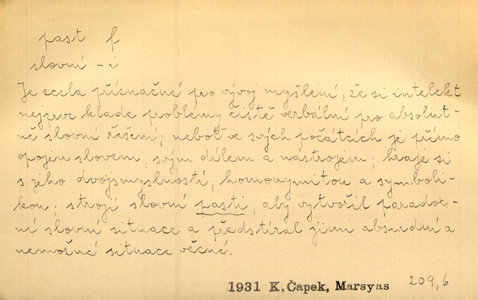 past f
slovní - i
Je zcela příznačné pro vývoj myšlení, že si intelekt
nejprve klade problémy čistě verbální pro absolut-
ní slovní řešení; neboť ve svých počátcích je přímo
opojen slovem, svým dílem a nástrojem; hraje si
s jeho dvojsmyslností, homonymitou a symboli-
kou; strojí slovní pasti, aby vytvořil paradox-
ní slovní situace a předstíral jimi absurdní a
nemožné situace věcné.
1931 K. Čapek, Marsyas 209,6